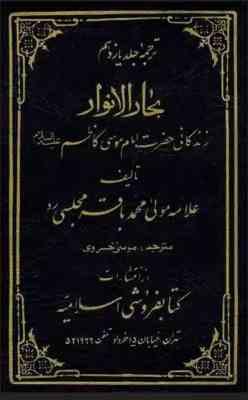 ترجمهٔ جلد یازدهم
بحارالانوار
زندگانی حضرت امام موسی کاظم علیه‌السلام
تألیف
علامه مولی محمد باقر مجلسی ره
مترجم: موسی خسروی
از انتشارات
کتابفروشی اسلامیه
تهران، خیابان ۱۵ خرداد تلفن ۵۲۱۹۶۶